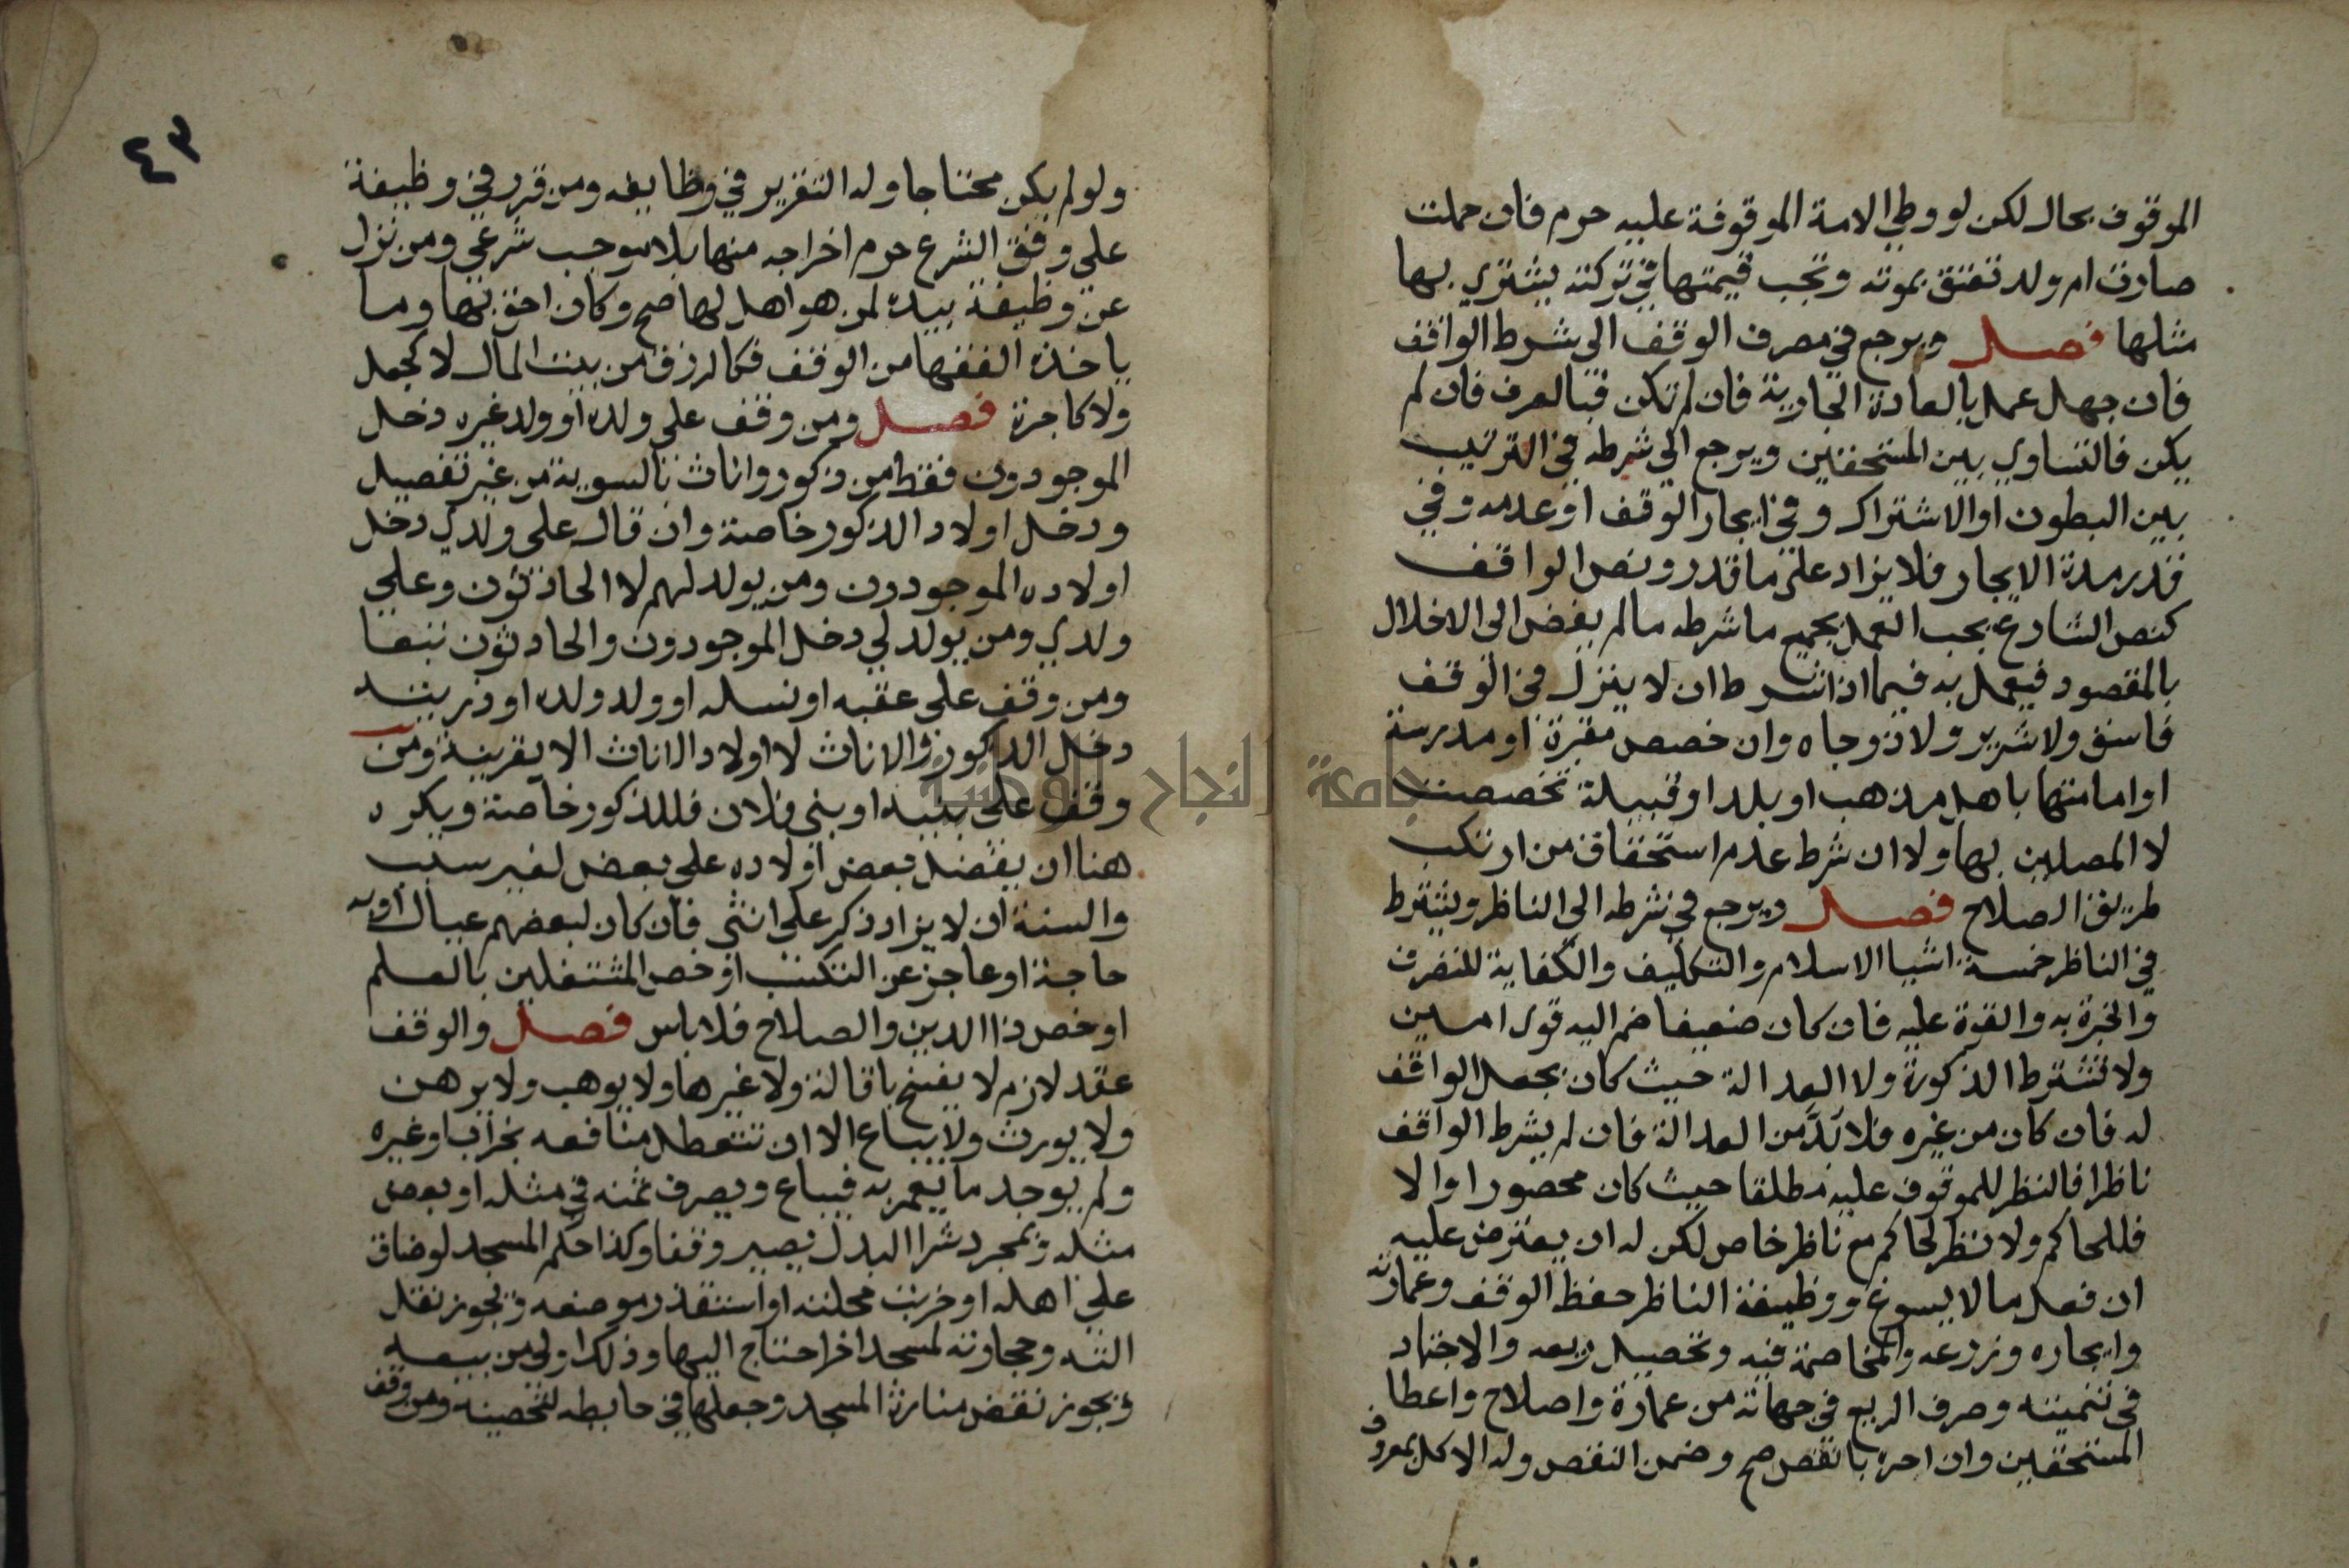 الموقوف بحال لكن لو وطي الامة الموقوفة عليه حرم فان حملت
صارت ام ولد تعتق بموته وتجب قيمتها في تركته يشتري بها
مثلها فصل ويرجع في مصرف الوقف الي شرط الواقف
فان جهل عمل بالعادة الجارية فان لم تكن فبالعرف فان لم
يكن فالتساوي بين المستحقين ويرجع الي شرطه في الترتيب
بين البطون او الاشتراك وفي ايجار الوقف او عدمه وفي
قدر مدة الايجار فلا يزاد على ما قدر ونص الواقف
كنص الشارع يجب العمل بجميع ما شرطه ما لم يفض الى الاخلال
بالمقصود فيعمل به فيما اذا شرط ان لا ينزل في الوقف
فاسق ولا شرير ولا ذو جاه وان خصص مقبرة او مدرسة
او امامتها باهل مذهب او بلد او قبيلة تخصصت
لا المصلين بها ولا ان شرط عدم استحقاق من ارتكب
طريق الصلاح فصل ويرجع في شرطه الي الناظر ويشترط
في الناظر خمسة اشيا الاسلام والتكليف والكفاية للتصرف
والخبرة به والقوة عليه فان كان ضعيفا ضم اليه قوى امين
ولا تشترط الذكورة ولا العدالة حيث كان بجعل الواقف
له فان كان من غيره فلا بد من العدالة فان لم يشرط الواقف
ناظرا فالنظر للموقوف عليه مطلقا حيث كان محصورا والا
فللحاكم ولا نظر لحاكم مع ناظر خاص لكن له ان يعترض عليه
ان فعل ما لا يسوغ ووظيفة الناظر حفظ الوقف وعمارته
وايجاره وزرعه والمخاصمة فيه وتحصيل ريعه والاجتهاد
في تنميته وصرف الريع في جهاته من عمارة واصلاح واعطا
المستحقين وان اجره بانقص صح وضمن النقص وله الاكل بمعروف
٤٣
ولو لم يكن محتاجا وله التقرير في وظايفه ومن قرر في وظيفة
علي وفق الشرع حرم اخراجه منها بلا موجب شرعي ومن نزل
عن وظيفة بيده لمن هو اهل لها صح وكان احق بها وما
ياخذه الفقها من الوقف فكالرزق من بيت المال لا كجعل
ولا كاجرة فصل ومن وقف على ولده او ولد غيره دخل
الموجودون فقط من ذكور واناث بالسوية من غير تفصيل
ودخل اولاد الذكور خاصة وان قال على ولدي دخل
اولاده الموجودون ومن يولد لهم لا الحادثون وعلي
ولدي ومن يولد لي دخل الموجودون والحادثون تبعا
ومن وقف على عقبه او نسله او ولد ولده او ذريته
دخل الذكور والاناث لا اولاد الاناث الا بقرينة ومن
وقف على بنيه او بني فلان فللذكور خاصة ويكره
هنا ان يفضل بعض اولاده على بعض لغير سبب
والسنة ان لا يزاد ذكر على انثى فان كان لبعضهم عيال او به
حاجة او عاجز عن التكسب او خص المشتغلين بالعلم
او خص ذا الدين والصلاح فلا باس فصل والوقف
عقد لازم لا يفسخ باقالة ولا غيرها ولا يوهب ولا يرهن
ولا يورث ولا يباع الا ان تتعطل منافعه بخراب او غيره
ولم يوجد ما يعمر به فيباع ويصرف ثمنه في مثله او بعض
مثله وبمجرد شرا البدل يصير وقفا وكذا حكم المسجد لو ضاق
علي اهله او خربت محلته او استقذر موضعه ويجوز نقل
الته وحجارته لمسجد اخر احتاج اليها وذلك اولى من بيعه
ويجوز نقض منارة المسجد وجعلها في حايطه لتحصينه ومن وقف
جامعة النجاح الوطنية